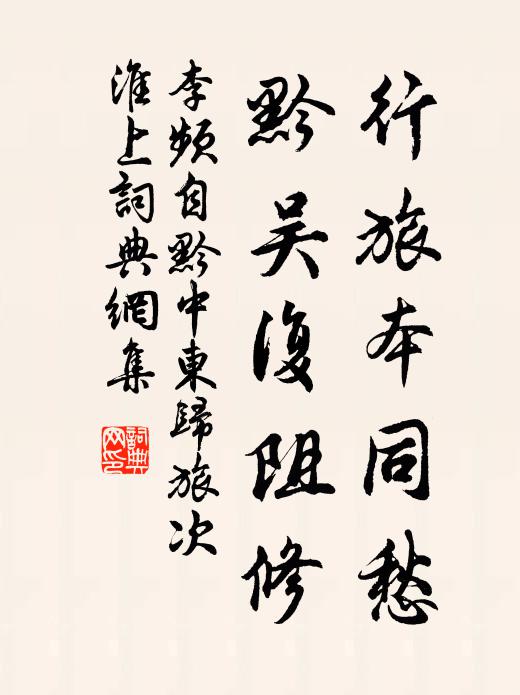 行旅本同愁
黔吴復阻修
李頻自黔中東歸旅次
淮上詞典網集
詞典
网印